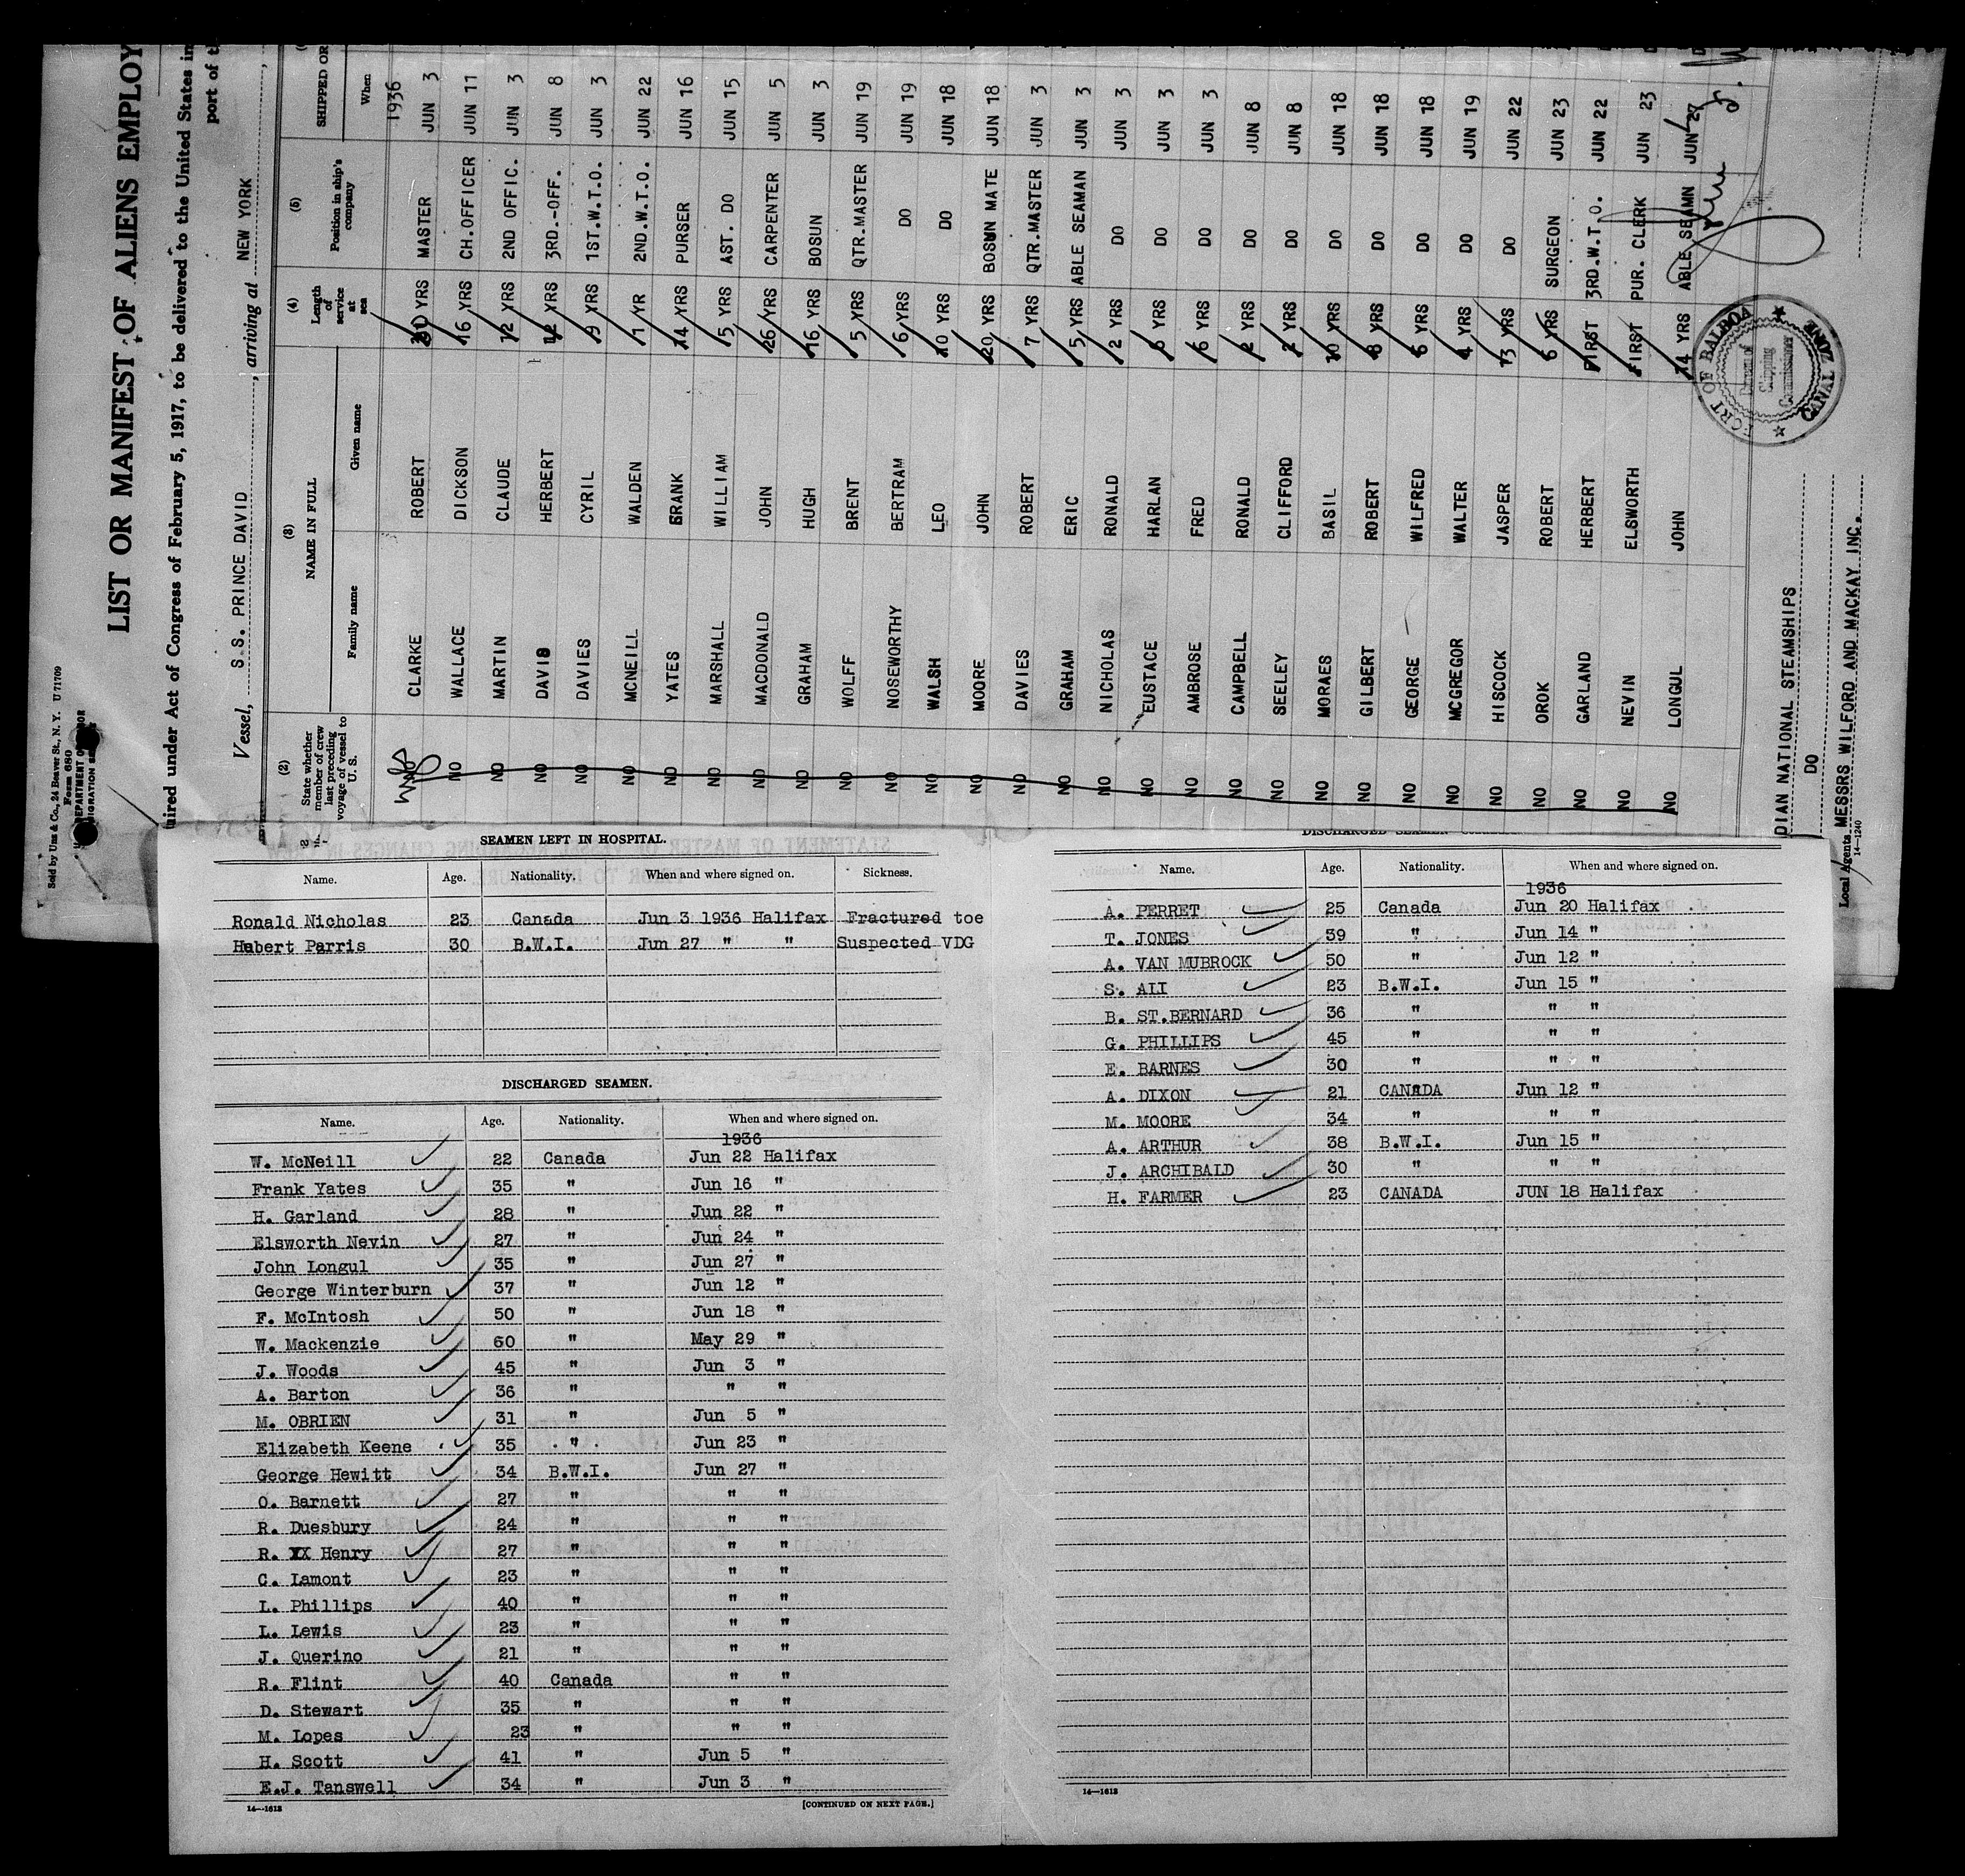 LIST OR MANIFEST OF ALIENS EMPLOY
uired under Act of Congress of February 5, 1917, to be delivered to the United States in
port of t
Sold by Unz & Co., 24 Beaver St., N. Y. U 71709
Form 680
DEPARTMENT OF
IGRATION SE
Vessel, S.S. PRINCE DAVID, arriving at NEW YORK,
(2) (3) (4) (5)
State whether member of crew last preceding voyage of vessel to U. S. NAME IN FULL Length of service at sea Position in ship's company SHIPPED OR
Family name Given name When
1936
CLARKE ROBERT 30 YRS MASTER JUN 3
NO WALLACE DICKSON 16 YRS CH.OFFICER JUN 11
NO MARTIN CLAUDE 12 YRS 2ND OFFIC. JUN 3
NO DAVIS HERBERT 12 YRS 3RD.-OFF. JUN 8
NO DAVIES CYRIL 9 YRS 1ST.W.T.O. JUN 3
NO MCNEILL WALDEN 1 YR 2ND.W.T.O. JUN 22
NO YATES FRANK 14 YRS PURSER JUN 16
NO MARSHALL WILLIAM 5 YRS AST. DO JUN 15
NO MACDONALD JOHN 26 YRS CARPENTER JUN 5
NO GRAHAM HUGH 16 YRS BOSUN JUN 3
NO WOLFF BRENT 5 YRS QTR.MASTER JUN 19
NO NOSEWORTHY BERTRAM 6 YRS DO JUN 19
NO WALSH LEO 10 YRS DO JUN 18
NO MOORE JOHN 20 YRS BOSUN MATE JUN 18
NO DAVIES ROBERT 7 YRS QTR.MASTER JUN 3
NO GRAHAM ERIC 5 YRS ABLE SEAMAN JUN 3
NO NICHOLAS RONALD 2 YRS DO JUN 3
NO EUSTACE HARLAN 6 YRS DO JUN 3
NO AMBROSE FRED 6 YRS DO JUN 3
NO CAMPBELL RONALD 2 YRS DO JUN 8
NO SEELEY CLIFFORD 2 YRS DO JUN 8
NO MORAES BASIL 10 YRS DO JUN 18
NO GILBERT ROBERT 8 YRS DO JUN 18
NO GEORGE WILFRED 6 YRS DO JUN 18
NO MCGREGOR WALTER 4 YRS DO JUN 19
NO HISCOCK JASPER 13 YRS DO JUN 22
NO OROK ROBERT 6 YRS SURGEON JUN 23
NO GARLAND HERBERT FIRST 3RD.W.T.O. JUN 22
NO NEVIN ELSWORTH FIRST PUR. CLERK JUN 23
NO LONGUL JOHN 14 YRS ABLE SEAMN JUN 27
PORT OF BALBOA
Shipping Commissioner
CANAL ZONE
DIAN NATIONAL STEAMSHIPS
DO
Local Agents MESSRS WILFORD AND MACKAY INC.
14—1240
SEAMEN LEFT IN HOSPITAL.
Name. Age. Nationality. When and where signed on. Sickness.
Ronald Nicholas 23 Canada Jun 3 1936 Halifax Fractured toe
Hubert Parris 30 B.W.I. Jun 27 " " Suspected VDG
DISCHARGED SEAMEN.
Name. Age. Nationality. When and where signed on.
1936
W. McNeill 22 Canada Jun 22 Halifax
Frank Yates 35 " Jun 16 "
H. Garland 28 " Jun 22 "
Elsworth Nevin 27 " Jun 24 "
John Longul 35 " Jun 27 "
George Winterburn 37 " Jun 12 "
F. McIntosh 50 " Jun 18 "
W. Mackenzie 60 " May 29 "
J. Woods 45 " Jun 3 "
A. Barton 36 " " "
M. OBRIEN 31 " Jun 5 "
Elizabeth Keene 35 " Jun 23 "
George Hewitt 34 B.W.I. Jun 27 "
O. Barnett 27 " " "
R. Duesbury 24 " " "
R. XX Henry 27 " " "
C. Lamont 23 " " "
L. Phillips 40 " " "
L. Lewis 23 " " "
J. Querino 21 " " "
R. Flint 40 Canada " "
D. Stewart 35 " " "
M. Lopes 23 " " "
H. Scott 41 " Jun 5 "
E.J. Tanswell 34 " Jun 3 "
14—1612 [CONTINUED ON NEXT PAGE.]
DISCHARGED SEAMEN
Name. Age. Nationality. When and where signed on.
1936
A. PERRET 25 Canada Jun 20 Halifax
T. JONES 39 " Jun 14 "
A. VAN MUBROCK 50 " Jun 12 "
S. ALI 23 B.W.I. Jun 15 "
B. ST.BERNARD 36 " " "
G. PHILLIPS 45 " " "
E. BARNES 30 " " "
A. DIXON 21 CANADA Jun 12 "
M. MOORE 34 " " "
A. ARTHUR 38 B.W.I. Jun 15 "
J. ARCHIBALD 30 " " "
H. FARMER 23 CANADA JUN 18 Halifax
14—1612